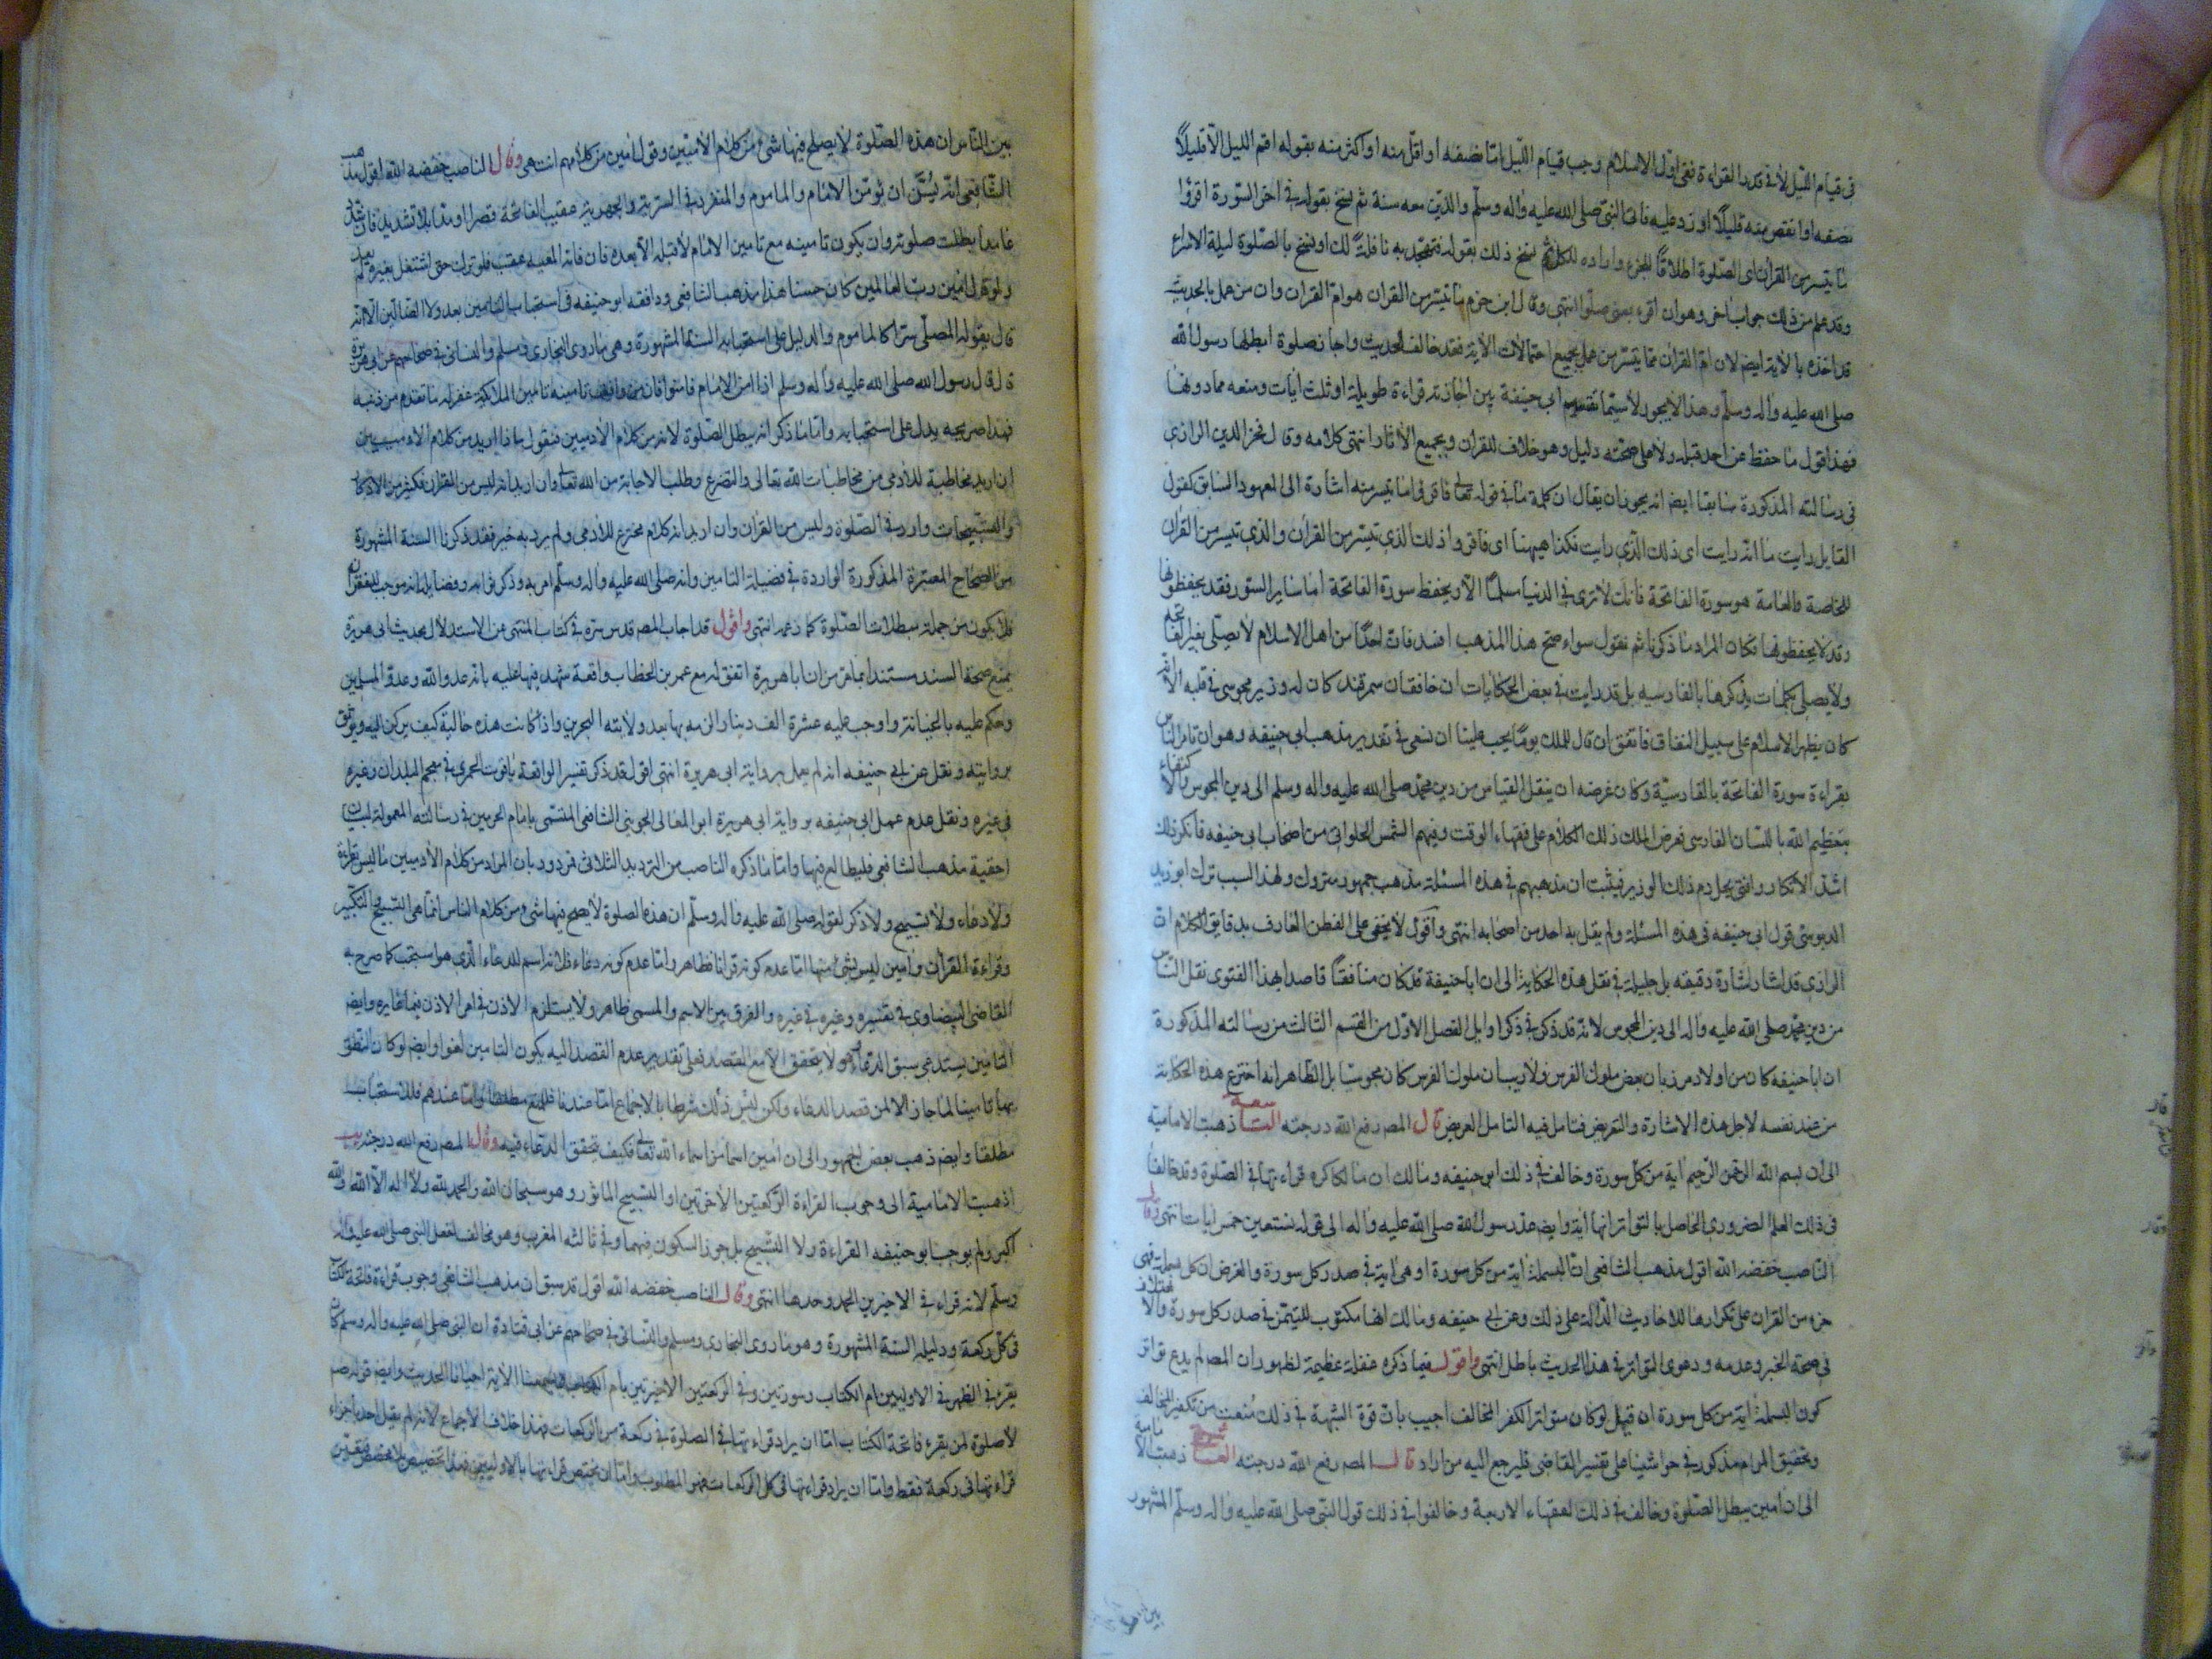 فى قيام الليل لا فى قدر القراءة ففى اول الاسلام وجب قيام الليل امّا نصفه او اقل منه او اكثر منه بقوله اقم الليل الّا قليلاً
نصفه او انقص منه قليلاً او زد عليه فاتى النبى صلى الله عليه واله وسلّم والذين معه سنة ثم نسخ بقوله فى اخر السورة اقرؤا
ما تيسر من القران اى الصّلوة اطلاقاً للجزء وارادة للكل ثم نسخ ذلك بقوله فتهجّد به نافلةً لك او نسخ بالصّلوة ليلة الاسراء
وقد علم من ذلك جواب اخر وهو ان اقرء بمعنى صلّوا انتهى وقال ابن حزم ما تيسّر من القران هو امّ القران وان من عمل بالحديث
قد اخذه بالاية ايضم لان امّ القران ممّا تيسّر من عمل بجميع احتمالات الاية فقد خالف الحديث واجاز صلوة ابطلها رسول الله
صلى الله عليه واله وسلّم وهذا لا يجوز لا سيّما تقسيم ابى حنيفة بين اجازته قراءة طويلة او ثلث ايات ومنعه ممّا دونها
فهذا قول ما حفظ عن احد قبله ولا على صحّته دليل وهو خلاف للقران وبجميع الاثار انتهى كلامه وقال فخر الدين الرازى
فى رسالته المذكورة سابقا ايضم انه يجوز ان يقال ان كلمة ما فى قوله تعالى فاقرؤا ما تيسر منه اشارة الى المعهود السابق كقول
القايل رايت ما انه رايت اى ذلك الّذى رايت فكذا هيهنا اى فاقرؤا ذلك الذى تيسّر من القران والّذى تيسّر من القران
للخاصة والعامة هو سورة الفاتحة فانك لا ترى فى الدنيا مسلمًا الّا ويحفظ سورة الفاتحة امّا ساير السّور فقد يحفظونها
وقد لا يحفظونها فكان المراد ما ذكرنا ثم نقول سواء صحّ هذا المذهب او فسد فان احدًا من اهل الاسلام لا يصلّى بغير الفاتحة
ولا يصلى بكلمات يذكرها بالفارسيه بل قد رايت فى بعض الحكايات ان خاقان سمرقند كان له وزير مجوسى فى قلبه الّا انه
كان يظهر الاسلام على سبيل النفاق فاتفق ان قال للملك يومًا يجب علينا ان نسعى فى تقدير مذهب ابى حنيفه وهو ان تامر الناس
بقراءة سورة الفاتحة بالفارسيّة وكان غرضه ان ينقل القياس من دين محمّد صلى الله عليه واله وسلم الى دين المجوس والاكتفاء
بتعظيم الله باللسان الفارسى فعرض الملك ذلك الكلام على فقهاء الوقت وفيهم الشمس الحلوانى من اصحاب ابى حنيفه فانكر ذلك
اشدّ الانكار وافتى بحل دم ذلك الوزير فيثبت ان مذهبهم فى هذه المسئلة مذهب مهجور متروك ولهذا السبب ترك ابو زيد
الدبوسىّ قول ابى حنيفه فى هذه المسئلة ولم يقل به احد من اصحابه انتهى واقول لا يخفى على الفطن العارف بدقايق الكلام انّ
الرازى قد اشار اشارة دقيقه بل جليلة فى نقل هذه الحكاية الى ان ابا حنيفة قد كان منافقًا قاصدا بهذا الفتوى نقل النّاس
من دين محمّد صلى الله عليه واله الى دين المجوس لانه قد ذكر فى ذكر اوايل الفصل الاوّل من القسم الثالث من رسالته المذكورة
ان ابا حنيفه كان من اولاد مرزبان بعض ملوك الفرس ولا ريب ان ملوك الفرس كان مجوسًا بل الظّاهر انه اخترع هذه الحكاية
من عند نفسه لاجل هذه الاشارة والتعريض فتامل فيه التامل العريض قال المصم رفع الله درجته السابعة ذهبت الامامية
الى ان بسم الله الرّحمن الرّحيم اية من كل سورة وخالف فى ذلك ابو حنيفه ومالك ان مالكا كره قراءتها فى الصّلوة وقد خالفا
فى ذلك العلم الضرورى الحاصل بالتواتر انها اية وايضم عدّ رسول الله صلى الله عليه واله الى قوله نستعين خمس ايات انتهى وقال
النّاصب خفضه الله اقول مذهب الشافعى انّ البسملة اية من كل سورة او هى اية فى صدر كل سورة والغرض ان كل بسملة فهى
جزء من القران على تكرارها للاحاديث الدّالة على ذلك وعن ابى حنيفه ومالك انها مكتوب للتيمّن فى صدر كل سورة والاختلاف
فى صحّة الخبر وعدمه ودعوى التواتر فى هذا الحديث باطل انتهى واقول فيما ذكره غفلة عظيمة لظهور ان المصم لم يدع تواتر
كون البسملة اية من كل سورة ان قيل لو كان متواترا لكفر المخالف اجيب بانّ قوة الشبهة فى ذلك مُنعت من تكفير المخالف
وتحقيق المرام مذكور فى حواشينا على تفسير القاضى فليرجع اليه من اراد قال المصم رفع الله درجته الثامنة ذهبت الامامية
الى ان امين يبطل الصّلوة وخالف فى ذلك الفقهاء الاربعة وخالفوا فى ذلك قول النّبى صلى الله عليه واله وسلّم المشهور
بين النّاس ان هذه الصّلوة لا يصلح فيها شىء من كلام الادميّين وقول امين من كلامهم انتهى وقال الناصب خفضه الله اقول مذهب
الشّافعى انّه يُسنّ ان يؤمّن الامام والماموم والمنفرد فى السرّية والجهرية عقيب الفاتحة قصرا او مدّا بلا تشديد فان شدّد
عامدا بطلت صلوته وان يكون تامينه مع تامين الامام لا قبله ولا بعده فان فاته المعيه عقّب فلو ترك حتى اشتغل بغيره لم يعد
ولو قال امين ربّ العالمين كان حسنا هذا مذهب الشافعى ووافقه ابو حنيفه فى استحباب التامين بعد ولا الضالّين الّا انّه
قال يقوله المصلّى سرّا كالماموم والدليل على استحبابه السنّة المشهورة وهى ما روى البخارى ومسلم والنسائى فى صحاحهم عن ابى هريرة
قال قال رسول الله صلى الله عليه واله وسلم اذا امّن الامام فامّنوا فان من وافق تامينه تامين الملائكة غفر له ما تقدم من ذنبه
فهذا صريحه يدل على استحبابه وامّا ما ذكر انه يبطل الصّلوة لانه من كلام الادميين فنقول ماذا اريد من كلام الادميين
ان اريد مخاطبة للادمى من مخاطبات الله تعالى والتضرع وطلب الاجابة من الله تعالى وان اريد انه ليس من القران فكثير من الاذكار
والتسبيحات وارد فى الصّلوة وليس من القران وان اريد انه كلام مخترع للادمى ولم يرد به خبر فقد ذكرنا السنة المشهورة
من الصّحاح المعتبرة المذكورة الواردة فى فضيلة التامين وانه صلى الله عليه واله وسلّم امر به وذكر ثوابه وفضايله انه موجب للغفران
فلا يكون من جملة مبطلات الصّلوة كما زعمه انتهى واقول قد اجاب المصم قدس سره فى كتاب المنتهى عن الاستدلال بحديث ابى هريرة
بمنع صحة السند مستندا بما مرّ من ان ابا هريرة اتفق له مع عمر بن الخطاب واقعة شهد فيها عليه بانه عدو الله وعدوّ المسلمين
وحكم عليه بالخيانة واوجب عليه عشرة الف دينار الزمه بها بعد ولايته البحرين واذا كانت هذه حاله كيف يركن اليه ويوثق
بروايته ونقل عن ابى حنيفه انه لم يعمل برواية ابى هريرة انتهى اقول قد ذكر تفسير الواقعة ياقوت الحموى فى معجم البلدان وغيره
فى غيره ونقل عدم عمل ابى حنيفه برواية ابى هريرة ابو المعالى الجوينى الشافعى المسمّى بامام الحرمين فى رسالته المعمولة لبيان
احقية مذهب الشافعى فليطالع فيها وامّا ما ذكره الناصب من الترديد الثلاثى فمردود بان المراد من كلام الادميين ما ليس بقراءة
ولا دعاء ولا تسبيح ولا ذكر لقوله صلى الله عليه واله وسلّم ان هذه الصلوة لا يصح فيها شىء من كلام الناس انّما هى التسبيح والتكبير
وقراءة القران وامين ليس بشىء منها امّا عدم كونه قرانا فظاهر وامّا عدم كونه دعاء فلانه اسم للدعاء الّذى هو استجب كما صرح به
القاضى البيضاوى فى تفسيره وغيره فى غيره والفرق بين الاسم والمسمى ظاهر ولا يستلزم الاذن فى امر الاذن فيما غايره وايضم
التامين يستدعى سبق الدّعاء ولا يتحقق الّا مع القصد فعلى تقدير عدم القصد اليه يكون التامين لغوا وايضم لو كان النطق
بها تامينا لما جاز الّا لمن قصد الدعاء ولكن ليس ذلك شرطا بالاجماع امّا عندنا فللمنع مطلقا وامّا عندهم فللاستحباب
مطلقا وايضم ذهب بعض الجمهور الى ان امين اسم من اسماء الله تعالى فكيف يتحقق الدّعاء فيه وقال المصم رفع الله درجته
ذهبت الامامية الى وجوب القراءة الرّكعتين الاخرتين او التسبيح الماثور وهو سبحان الله والحمد لله ولا اله الّا الله والله
اكبر ولم يوجب ابو حنيفه القراءة ولا التسبيح بل جوز السكون فيهما وفى ثالثه المغرب وهو مخالف لفعل النبى صلى الله عليه واله
وسلّم لانه قراء فى الاخيرين الحمد وحدها انتهى وقال الناصب خفضه الله اقول قد سبق ان مذهب الشافعى وجوب قراءة فاتحة الكتاب
فى كل ركعة ودليله السنة المشهورة وهو ما روى البخارى ومسلم والنّسائى فى صحاحهم عن ابى قتادة ان النبى صلى الله عليه واله وسلم كان
يقرء فى الظهر فى الاوليين ام الكتاب وسورتين وفى الركعتين الاخيرتين بام الكتاب ويسمعنا الاية احيانا الحديث وايضم قوله صم
لا صلوة لمن يقرء فاتحة الكتاب امّا ان يراد قراءتها فى الصلوة فى ركعة من الركعات فهذا خلاف الاجماع لانه لم يقل احد باجزاء
قراءتها فى ركعة فقط وامّا ان يراد قراءتها فى كل الركعات فهو المطلوب وامّا ان يختص قراءتها بالاوليين فهذا تخصيص بلا مخصص فتعيّن